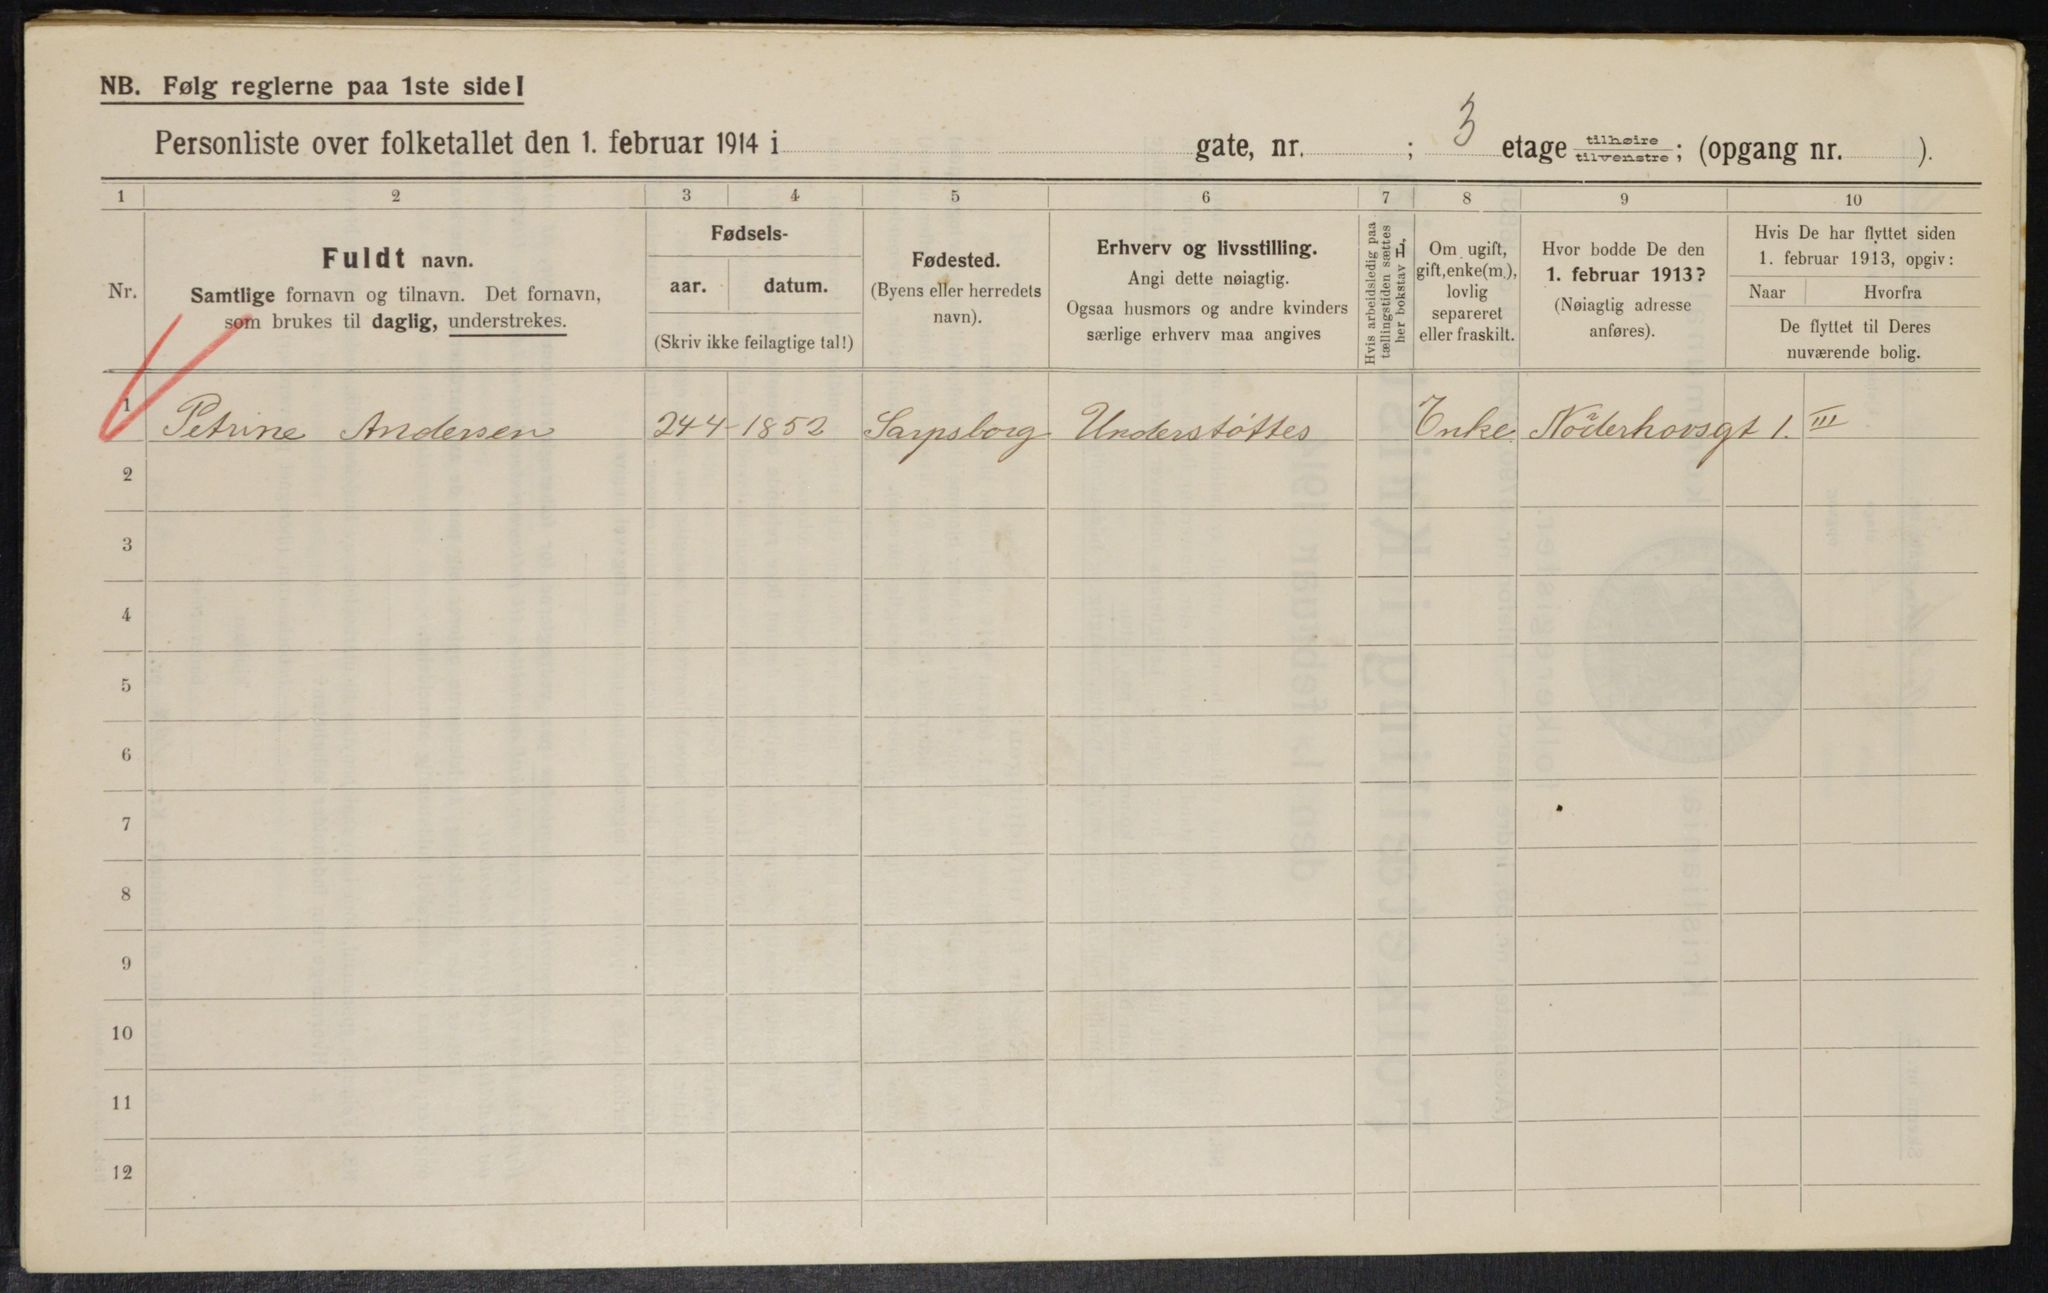 NB. Følg reglerne paa 1ste side!
Personliste over folketallet den 1. februar 1914 i gate, nr. ; 3 etage tilhøire tilvenstre; (opgang nr. ).
1 2 3 4 5 6 7 8 9 10
Nr.
Fuldt navn.
Samtlige fornavn og tilnavn. Det fornavn,
som brukes til daglig, understrekes.
Fødsels-
aar. datum.
(Skriv ikke feilagtige tal!)
Fødested.
(Byens eller herredets
navn).
Erhverv og livsstilling.
Angi dette nøiagtig.
Ogsaa husmors og andre kvinders
særlige erhverv maa angives
Hvis arbeidsledig paa
tællingstiden sættes
her bokstav L.
Om ugift,
gift, enke(m.),
lovlig
separeret
eller fraskilt.
Hvor bodde De den
1. februar 1913?
(Nøiagtig adresse
anføres).
Hvis De har flyttet siden
1. februar 1913, opgiv:
Naar Hvorfra
De flyttet til Deres
nuværende bolig.
1 Petrine Andersen 24 4 - 1852 Sarpsborg Understøttes Enke Nöderhovsgt 1. III
2
3
4
5
6
7
8
9
10
11
12